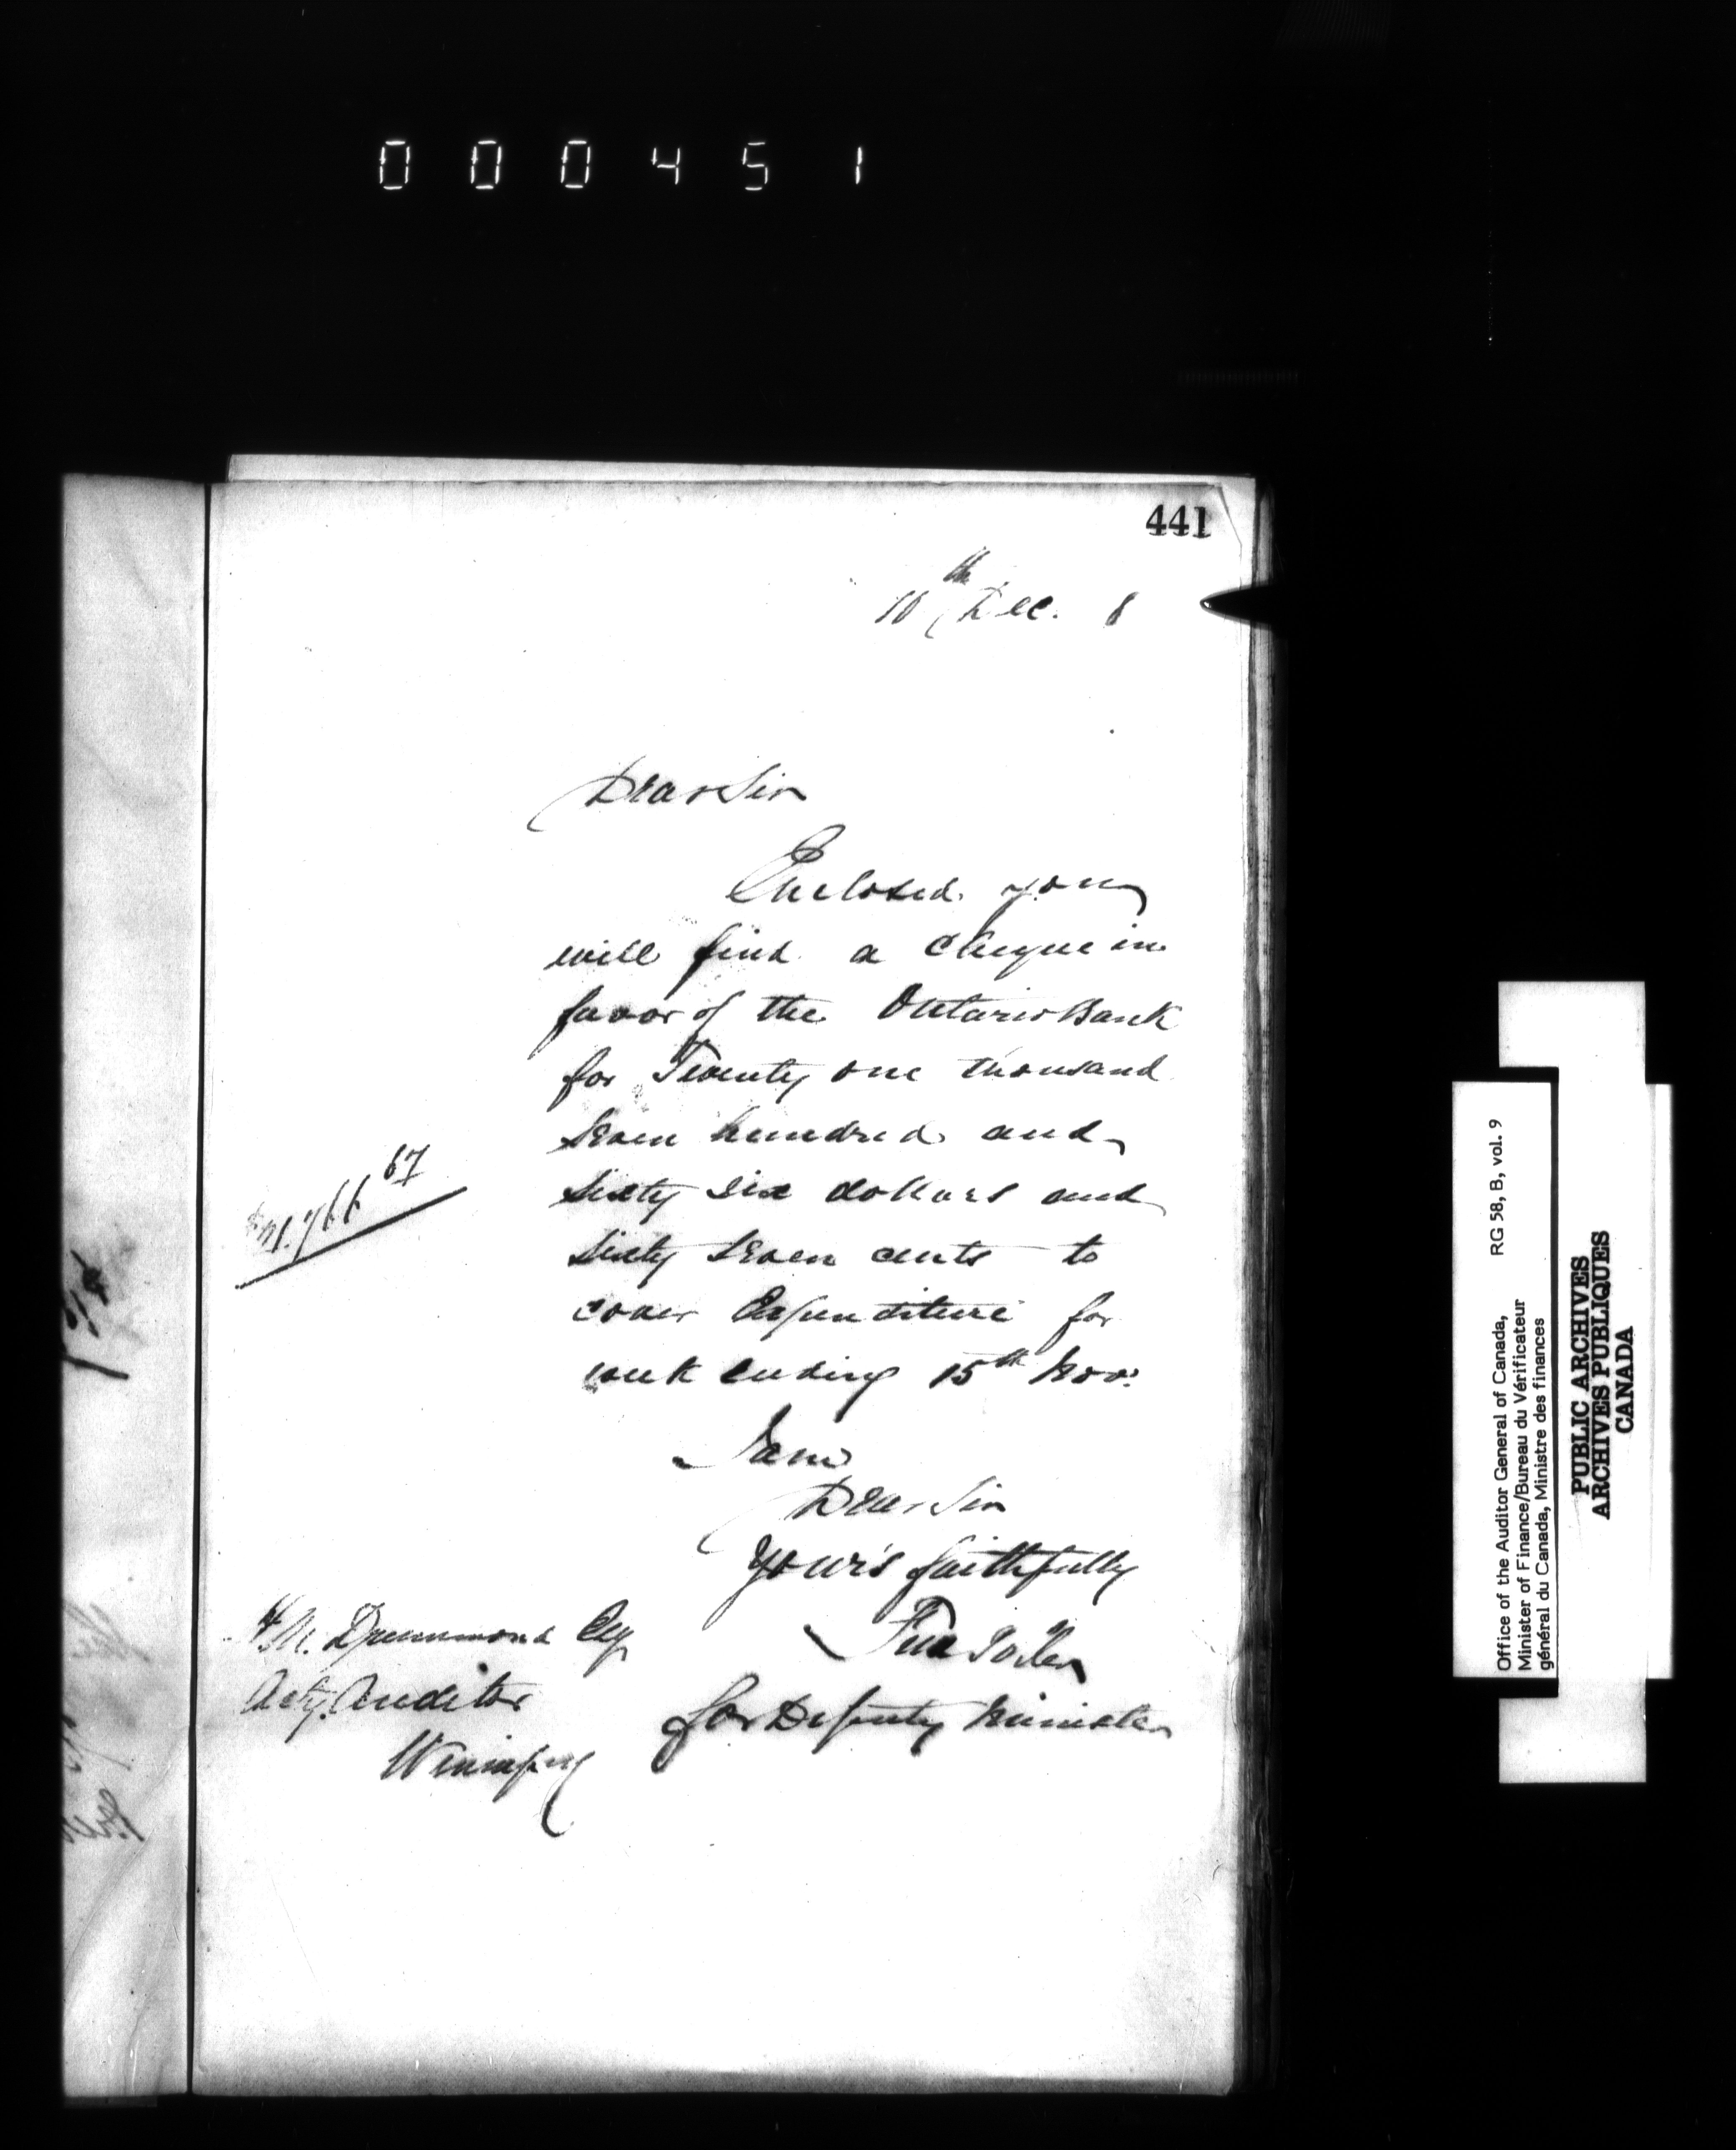 000451
441
10th Dec. 8
Dear Sir
Enclosed you
will find a cheque in
favor of the Ontario Bank
for Twenty one thousand
seven hundred and
sixty six dollars and
sixty seven cents to
cover Expenditure for
week ending 15th Nov.
$21.766 67
I am
Dear Sir
Your's faithfully
Fred Toller
for Deputy Minister
H.M. Drummond Esq
Actg. Auditor
Winnipeg
Office of the Auditor General of Canada, RG 58, B, vol. 9
Minister of Finance/Bureau du Vérificateur
général du Canada, Ministre des finances
PUBLIC ARCHIVES
ARCHIVES PUBLIQUES
CANADA